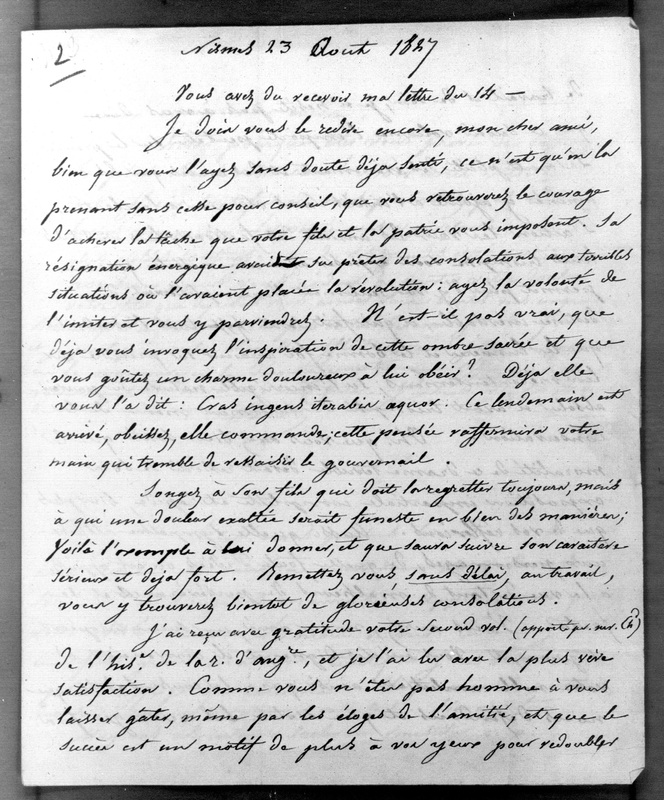 2
Nismes 23 Aout 1827
Vous avez du recevoir ma lettre du 14 —
Je dois vous le redire encore, mon cher ami,
bien que vous l'ayez sans doute déja senti, ce n'est qu'en la
prenant sans cesse pour conseil, que vous retrouverez le courage
d'achever la tâche que votre fils et la patrie vous imposent. Sa
résignation énergique avait su prêter des consolations aux terribles
situations où l'avaient placée la révolution : ayez la volonté de
l'imiter et vous y parviendrez. N'est-il pas vrai, que
déja vous invoquez l'inspiration de cette ombre sacrée et que
vous goûtez un charme douloureux à lui obéir ? Déja elle
vous l'a dit : Cras ingens iterabis æquor. Ce lendemain est
arrivé, obeissez, elle commande; cette pensée raffermira votre
main qui tremble de ressaisir le gouvernail.
Songez à son fils qui doit la regretter toujours, mais
à qui une douleur exaltée serait funeste en bien des manières;
Voilà l'exemple à lui donner, et que saura suivre son caractere
sérieux et déja fort. Remettez vous sans délai, au travail,
vous y trouverez bientot de glorieuses consolations.
J'ai reçu avec gratitude votre second vol. (apporté pr. mr.
de l'hisre. de la r. d'angre., et je l'ai lu avec la plus vive
satisfaction. Comme vous n'êtes pas homme à vous
laisser gâter, même par les éloges de l'amitié, et que le
succès est un motif de plus à vos yeux pour redoubler